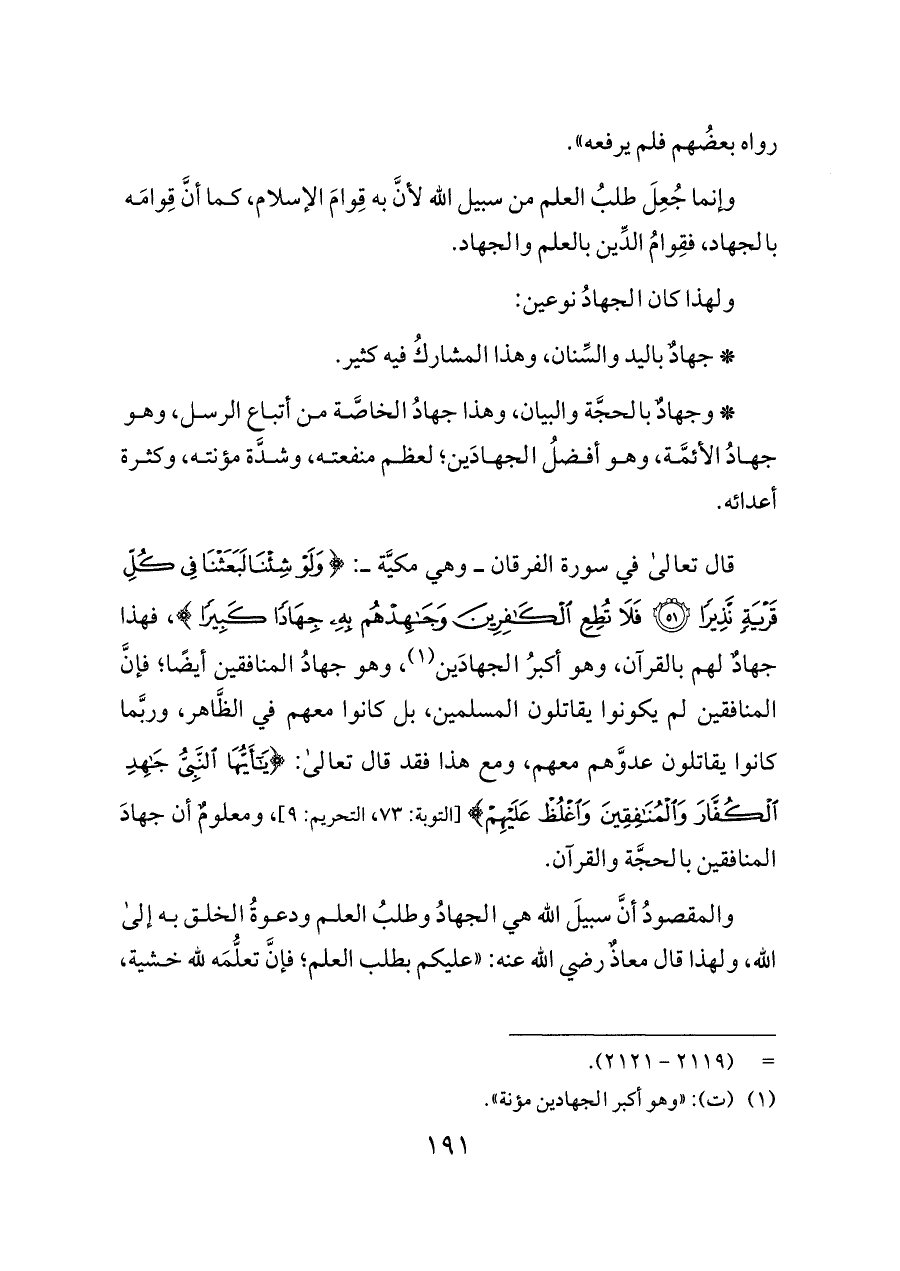 رواه بعضُهم فلم يرفعه».
وإنما جُعِلَ طلبُ العلم من سبيل الله لأنَّ به قِوامَ الإسلام، كما أنَّ قِوامَه
بالجهاد، فقِوامُ الدِّين بالعلم والجهاد.
ولهذا كان الجهادُ نوعين:
* جهادٌ باليد والسِّنان، وهذا المشاركُ فيه كثير.
* وجهادٌ بالحجَّة والبيان، وهذا جهادُ الخاصَّة من أتباع الرسل، وهو
جهادُ الأئمَّة، وهو أفضلُ الجهادَين؛ لعظم منفعته، وشدَّة مؤنته، وكثرة
أعدائه.
قال تعالىٰ في سورة الفرقان ـ وهي مكيَّة ـ: ﴿وَلَوْ شِئْنَا لَبَعَثْنَا فِي كُلِّ
قَرْيَةٍ نَّذِيرًا ۝٥١ فَلَا تُطِعِ ٱلْكَـٰفِرِينَ وَجَـٰهِدْهُم بِهِۦ جِهَادًا كَبِيرًا﴾، فهذا
جهادٌ لهم بالقرآن، وهو أكبرُ الجهادَين(١)، وهو جهادُ المنافقين أيضًا؛ فإنَّ
المنافقين لم يكونوا يقاتلون المسلمين، بل كانوا معهم في الظَّاهر، وربَّما
كانوا يقاتلون عدوَّهم معهم، ومع هذا فقد قال تعالىٰ: ﴿يَـٰٓأَيُّهَا ٱلنَّبِيُّ جَـٰهِدِ
ٱلْكُفَّارَ وَٱلْمُنَـٰفِقِينَ وَٱغْلُظْ عَلَيْهِمْ﴾ [التوبة: ٧٣، التحريم: ٩]، ومعلومٌ أن جهادَ
المنافقين بالحجَّة والقرآن.
والمقصودُ أنَّ سبيلَ الله هي الجهادُ وطلبُ العلم ودعوةُ الخلق به إلىٰ
الله، ولهذا قال معاذٌ رضي الله عنه: «عليكم بطلب العلم؛ فإنَّ تعلُّمَه لله خشية،
= (٢١١٩ - ٢١٢١).
(١) (ت): «وهو أكبر الجهادين مؤنة».
١٩١